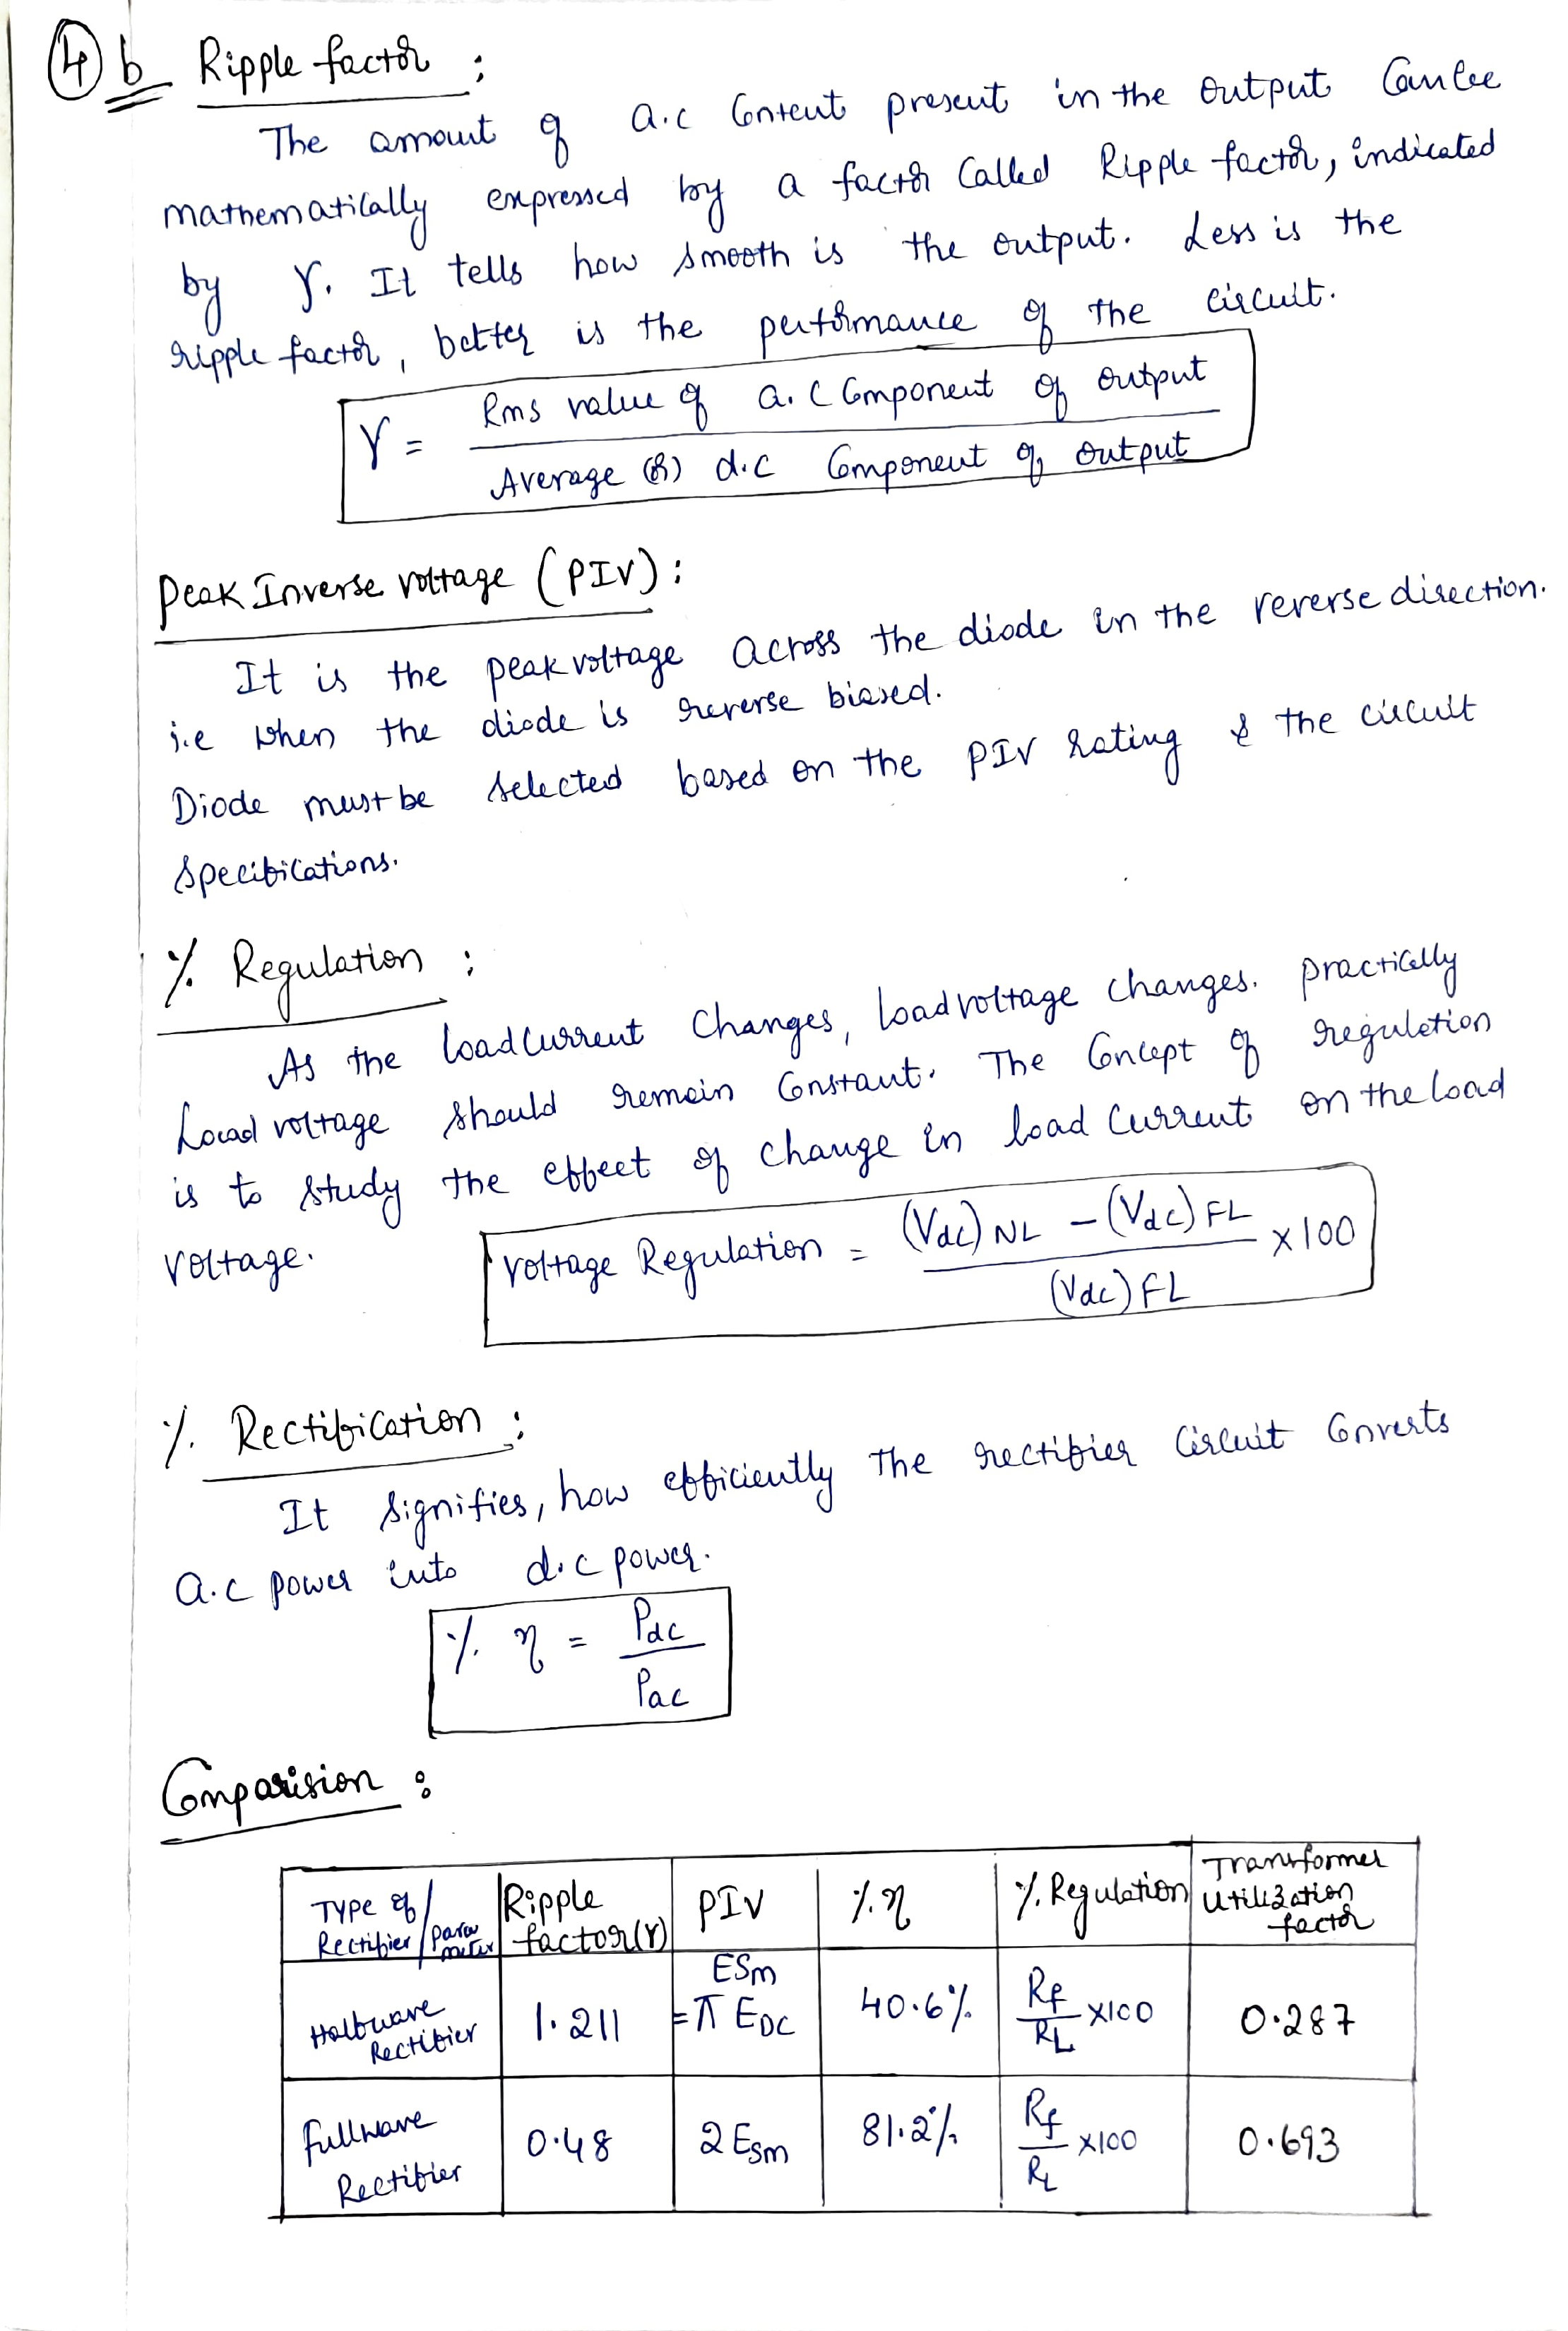 4 b Ripple factor :
The amount of a.c content present in the output can be
mathematically expressed by a factor called Ripple factor, indicated
by γ. It tells how smooth is the output. Less is the
ripple factor, better is the performance of the circuit.
γ = Rms value of a.c component of output
Average (or) d.c component of output
Peak Inverse voltage (PIV) :
It is the peak voltage across the diode in the reverse direction.
i.e when the diode is reverse biased.
Diode must be selected based on the PIV rating & the circuit
specifications.
% Regulation :
As the load current changes, load voltage changes. practically
Load voltage should remain constant. The concept of regulation
is to study the effect of change in load current on the load
voltage.
Voltage Regulation = (Vdc) NL - (Vdc) FL x 100
(Vdc) FL
% Rectification :
It signifies, how efficiently the rectifier circuit converts
a.c power into d.c power.
% η = Pdc
Pac
Comparision :
Type of Rectifier / parameter Ripple factor(γ) PIV % η % Regulation Transformer Utilization factor
Halfwave Rectifier 1.211 ESm = π EDC 40.6% Rf/RL x100 0.287
Fullwave Rectifier 0.48 2 Esm 81.2% Rf/RL x100 0.693